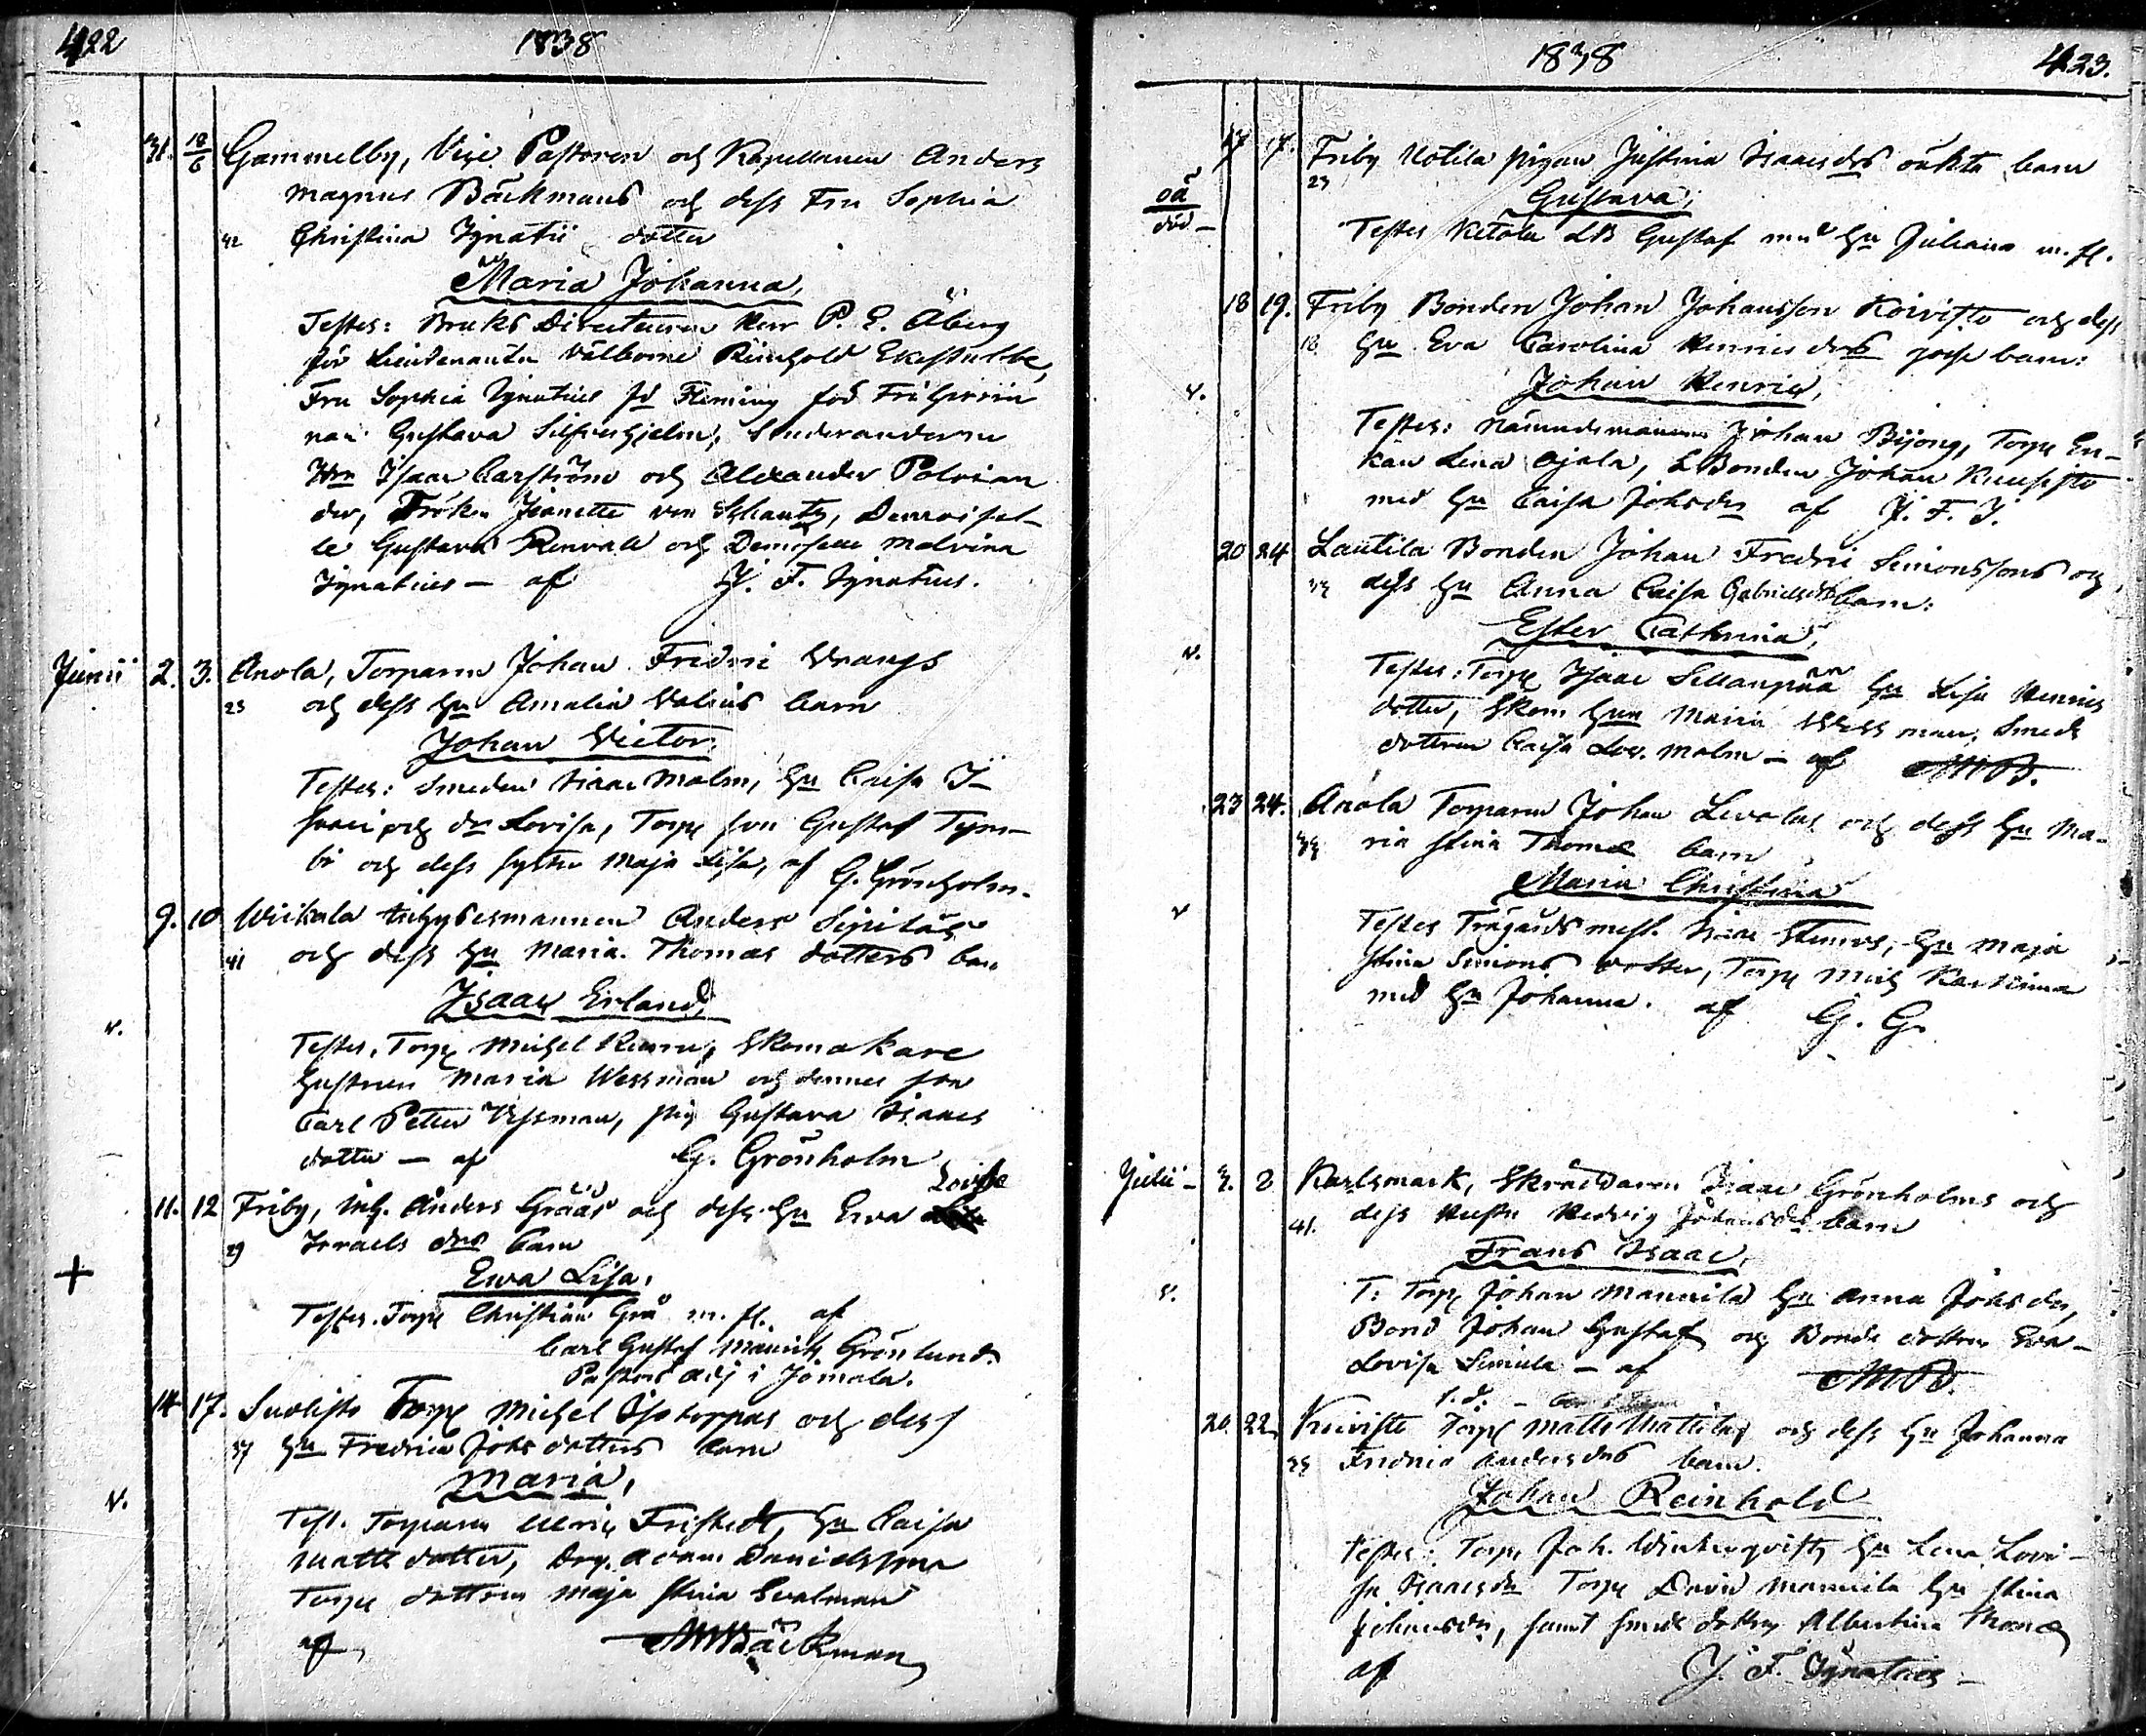 422 1838
31. 10/6 Gammelby, Vice Pastoren och Kapellanen Anders
Magnus Bäckmans och dess Fru Sophia
42 Christina Ignatii dotter
Maria Johanna,
Testes: Bruks Directeuren Herr P. E. Åberg
för Lieutenanten Välborne Reinhold Ekestubbe,
Fru Sophia Ignatius fd Fleming född Friherrin
nan Gustava Silfverhjelm, Studeranderne
Hrr Isaac Carström och Alexander Polvian
der, Fröken Jeanette von Schantz, Demoisel-
le Gustava Renvall och Demoiselle Malvina
Ignatius — af J. F. Ignatius.
Junii 2. 3. Anola, Torparen Johan Fredric Wrangs
23 och dess Hu Amalia Walius barn
Johan Victor.
Testes: Smeden Isaac Malm, Hu Caisa I-
saaci och dr Lovisa, Torp son Gustaf Tym-
bi och dess syster Maja Lisa, af G. Grönholm.
9. 10 Wiikala Inhysesmannen Anders Sipiläs
41 och dess Hu Maria Thomas dotters barn
Isaac Erland,
v.
Testes, Torp Michel Kunnu, Skomakare
hustrun Maria Wessman och dennes son
Carl Petter Wessman, pig Gustava Isaacs
dotter — af G. Grönholm
Lovisa
11. 12 Friby, Inh. Anders Grääs och dess Hu Ewa
29 Israels drs barn
+ Ewa Lisa.
Testes. Torp Christian Grå m. fl. af
Carl Gustaf Mauritz Grönlund.
Pastors adj i Jomala.
14 17. Suolisto Torp Michel Isotuppas och dess
37 Hu Fredrica Johs dotters barn
Maria,
v.
Test. Torparen Ulric Fristedt, Hu Caisa
Matts dotter, Drg. Adam Danielsson
Torp dottern Maja Stina Svalman
af AMBäckman
1838 423.
17 17. Friby Kotila pigan Justina Isaacsdrs oäkta barn
23 Gustava,
oä
död —
Testes Ketola LB Gustaf med Hu Juliana m. fl.
18 19. Friby Bonden Johan Johansson Koivisto och dess
18 Hu Eva Carolina Henricsdrs gosse barn:
v. Johan Henric,
Testes: Nämndemannen Johan Bijong, Torp En-
kan Lena Ojala, L Bonden Johan Knuusisto
med Hu Caisa Johsdr af J. F. I.
20 24 Lautila Bonden Johan Fredric Simonssons och
33 dess Hu Anna Caisa Gabrielsdrs barn:
v. Ester Cathrina,
Testes: Torp Isaac Sillanpää Hu Lisa Henrics
dotter, Skom Hun Maria Wessman, Smeds
dottren Caisa Lov. Malm — af AMB.
23 24. Anola Torparen Johan Levolas och dess Hu Ma-
33 ria Stina Thomæ barn
v Maria Christina
Testes Trägårds mest. Isaac Stenros, Hu Maja
Stina Simons dotter, Torp Mich Karkiina
med Hu Johanna. af G. G.
Julii — 3. 8 Karlsmark, Skräddaren Isaac Grönholms och
41. dess Hustru Hedvig Johansdrs barn
Frans Isaac,
v. T: Torp Johan Mannila Hu Anna Johsdr,
Bond Johan Gustaf och Bonde dottren Eva
Lovisa Simula — af AMB.
20. 22. Knuiste Torp Matts Mattilas och dess Hu Johanna
33 Fredrica Andersdrs barn.
Johan Reinhold
Testes: Torp. Joh. Winterqvist, Hu Lena Lovi-
sa Isaacsdr Torp David Mannila Hu Stina
Johansdr, samt Smeds dottren Albertina Thomæ
af J. F. Ignatius —